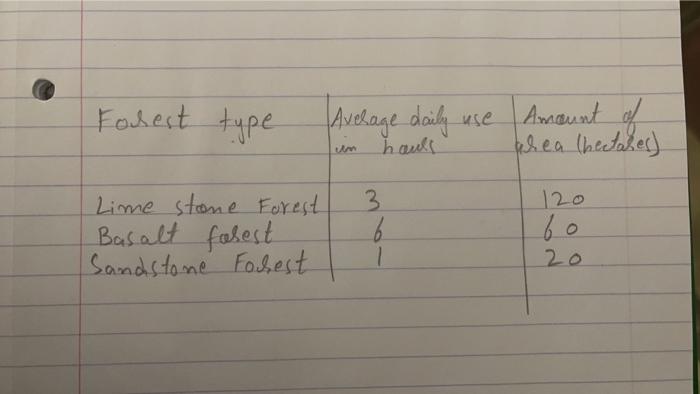 Forest type Average daily use Amount of
in hours area (hectares)
Lime stone Forest 3 120
Basalt forest 6 60
Sandstone Forest 1 20